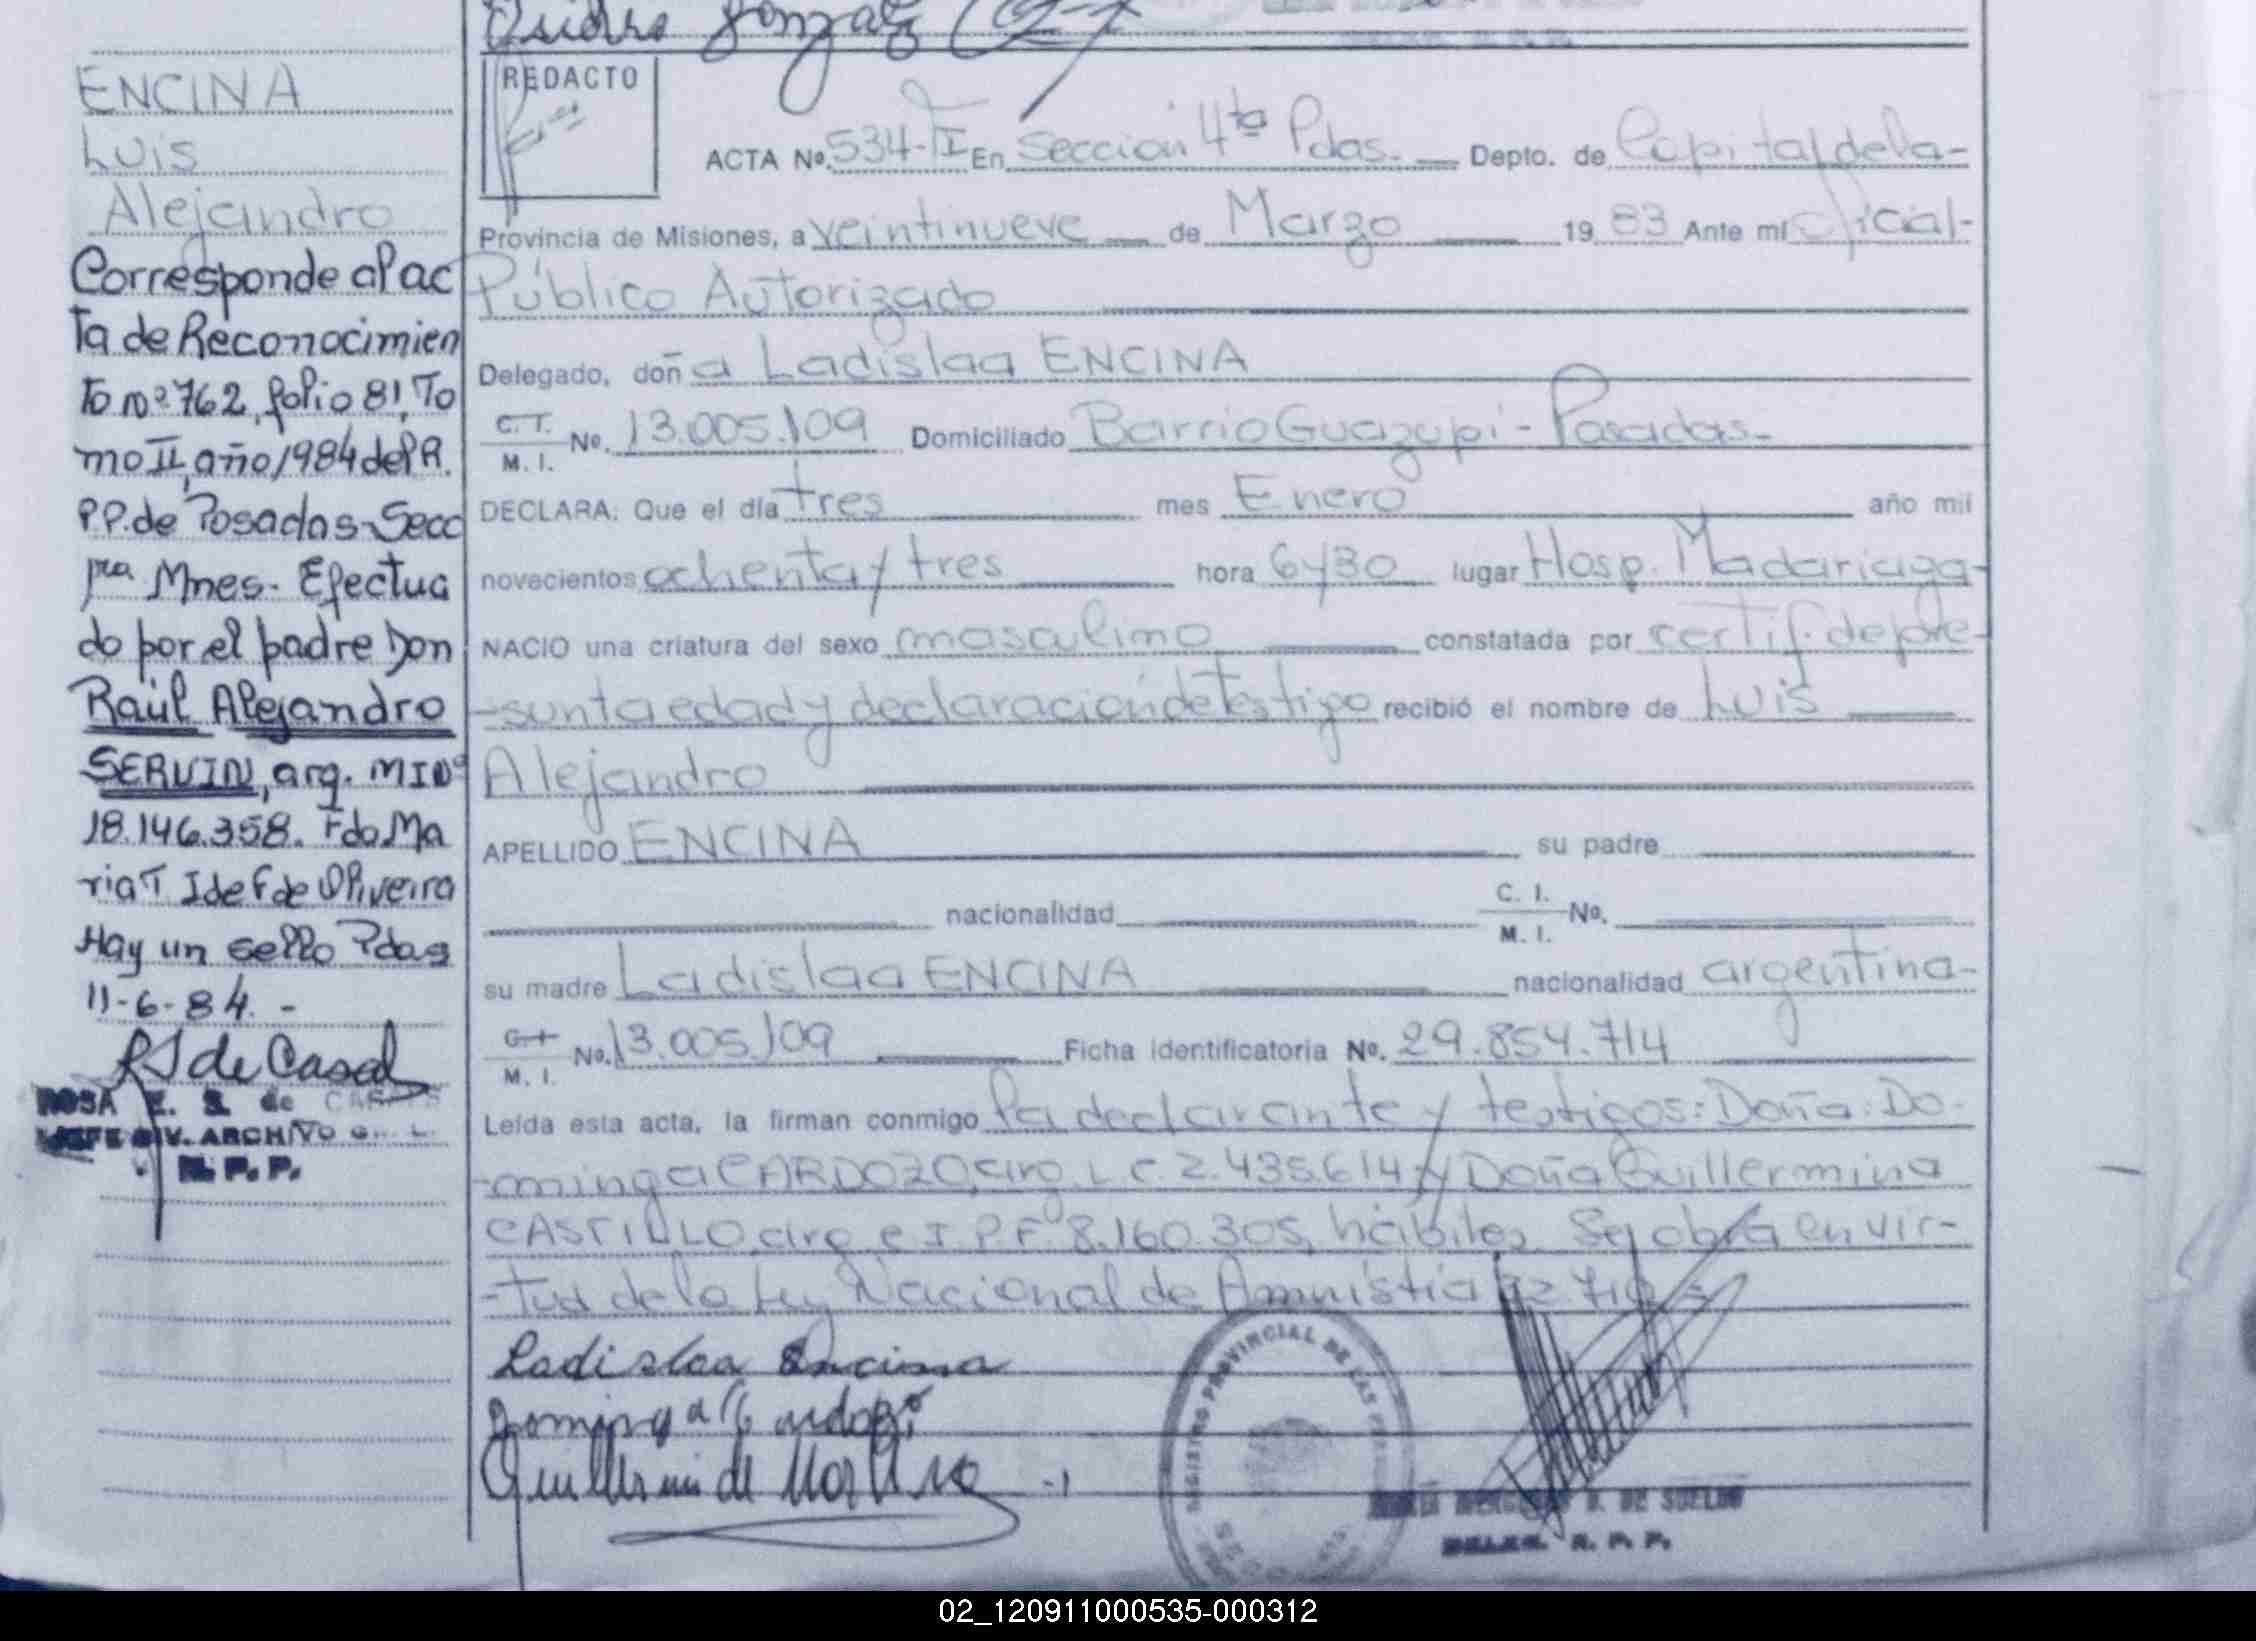 Isidro Gonzalez
ENCINA
Luis
Alejandro
Corresponde al ac
ta de Reconocimien
to nº 762, folio 81, To
mo II, año 1984 del R.
P.P. de Posadas-Secc
pra Mnes- Efectua
do por el padre Don
Raúl Alejandro
SERVIN, arg. MI Nº
18.146.358. Fdo Ma
ria T I de F de Oliveira
Hay un sello Pdas
11-6-84.-
RS de Casal
ROSA E. S. de
JEFE DIV. ARCHIVO G.
R. P. P.
REDACTO
ACTA Nº. 534-TI En Seccion 4ta Pdas. Depto. de Capital de la-
Provincia de Misiones, a veintinueve de Marzo 1983 Ante mí Oficial-
Público Autorizado
Delegado, doña Ladislaa ENCINA
C.T. M. I. No. 13.005.109 Domiciliado Barrio Guazupi - Posadas-
DECLARA: Que el día tres mes Enero año mil
novecientos ochenta y tres hora 6y30 lugar Hosp. Madariaga-
NACIO una criatura del sexo masculino constatada por certif. de pre-
-sunta edad y declaración de testigo recibió el nombre de Luis
Alejandro
APELLIDO ENCINA su padre
nacionalidad C. I. M. I. No.
su madre Ladislaa ENCINA nacionalidad argentina-
M. I. No. 13.005.109 Ficha identificatoria No. 29.854.714
Leída esta acta, la firman conmigo la declarante y testigos: Doña: Do-
-minga CARDOZO, arg. L C. 2.435.614 y Doña Guillermina
CASTILLO, arg. C I. P.F. 8.160.305, hábiles. Se obra en vir-
-tud de la Ley Nacional de Amnistia
Ladislaa Encina
Dominga Cardozo
REGISTRO PROVINCIAL DE LAS PERSONAS
DE SUELDO
DELEG. R. P. P.
02_120911000535-000312